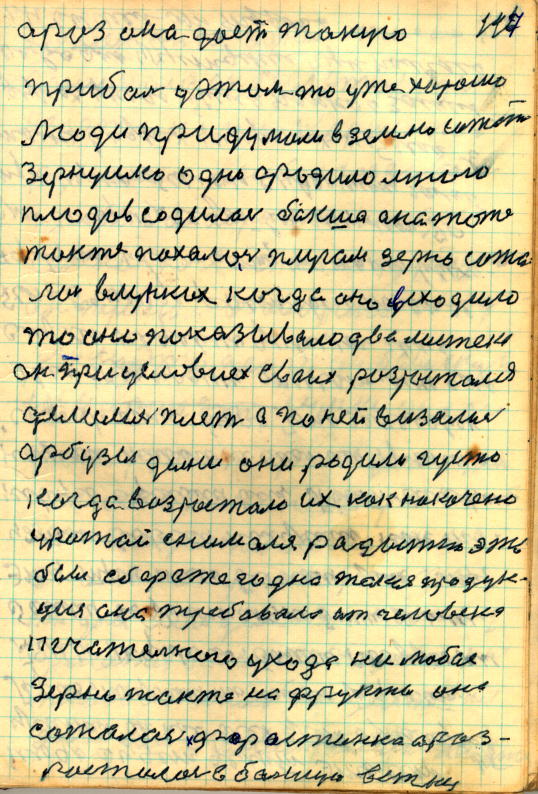 117
ароз она доет токую
прибал уэтом то уже хорошо
люди придумоли в земно сожот
Зернушко одно ородило много
плодов содилас бакша она тоже
токже похалос плугом зерно сожа
лос влунких когда оно выходило
то оно показывало два листека
он при условиех своих розростался
делался плет а по ней визалис
арбузы дыни они родили густо
когда возростало их как накочено
урожай снимался радостно это
был сбор ежегодно такея продук-
ция она требовала от человека
тчателного ухода ни любое
Зерно также на фрукты оно
сожалос
ростолос в болшую ветку